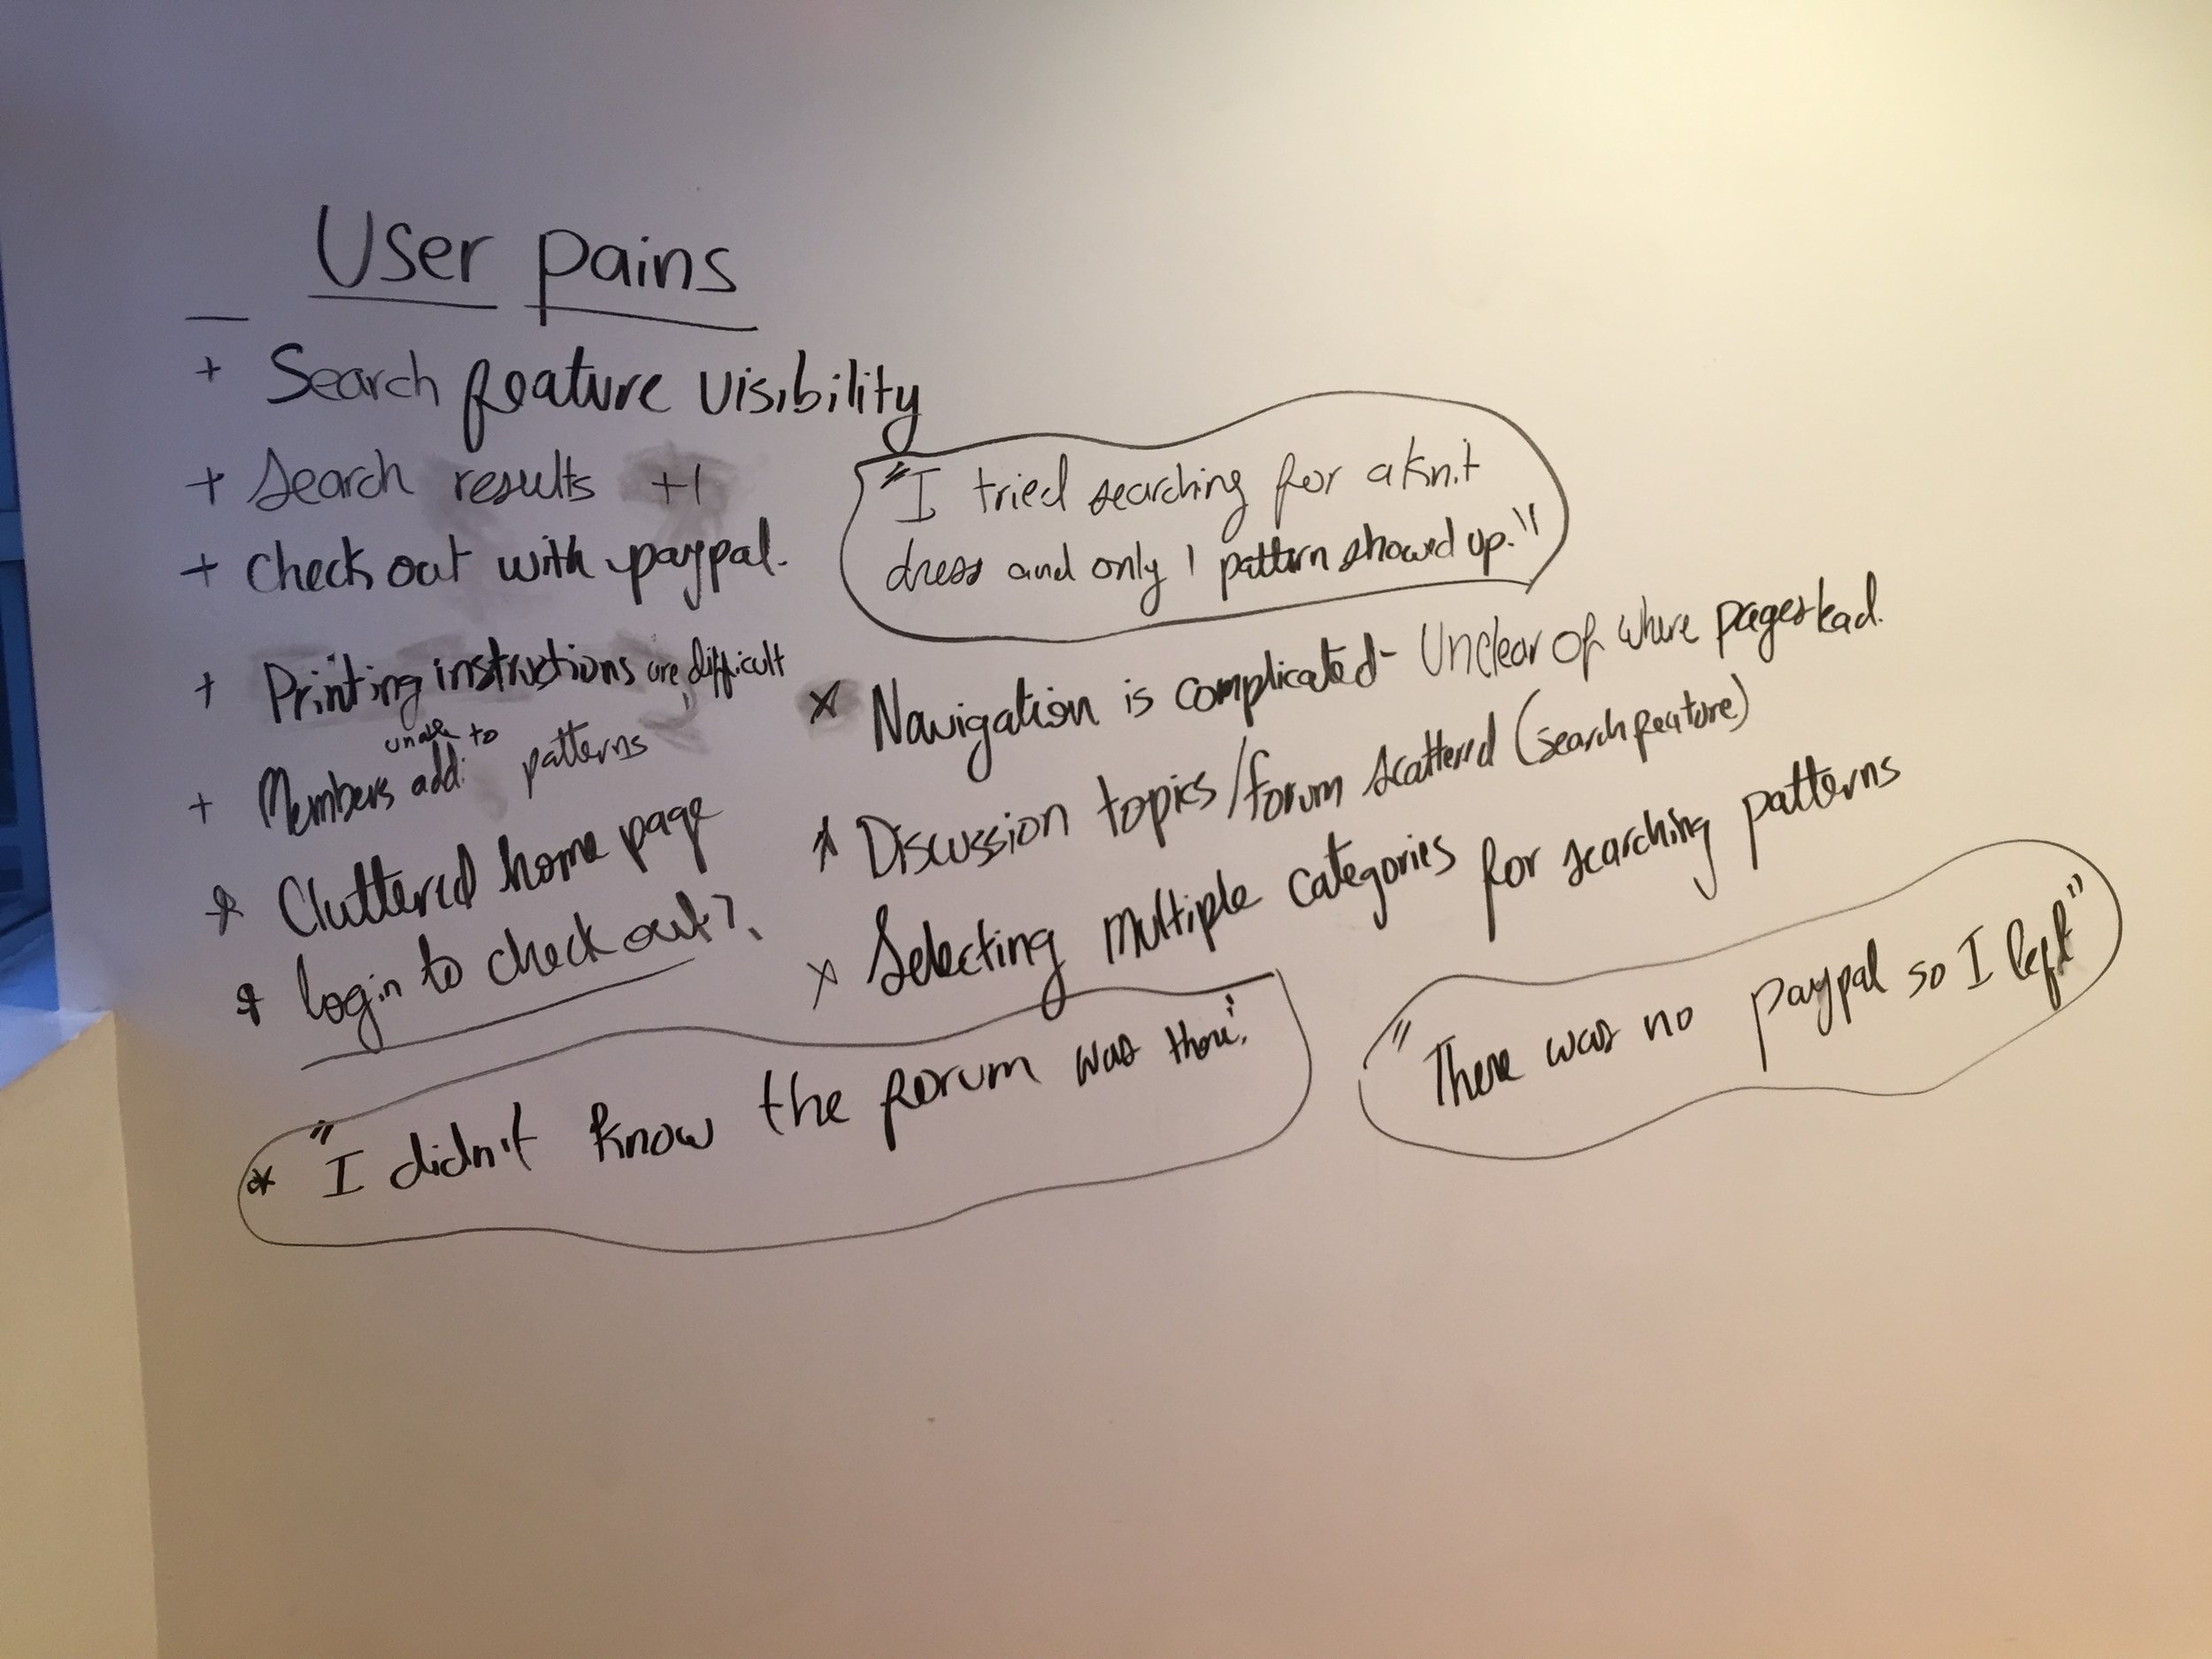 User pains
+ Search feature visibility
+ Search results +1
+ Check out with paypal.
+ Printing instructions are difficult
unable to
+ Members add patterns
* Cluttered home page
* login to check out?
"I tried searching for a knit
dress and only 1 pattern showed up."
x Navigation is complicated - Unclear of where pages lead.
* Discussion topics/forum scattered (search feature)
x Selecting multiple categories for searching patterns
* "I didn't know the forum was there."
"There was no paypal so I left"